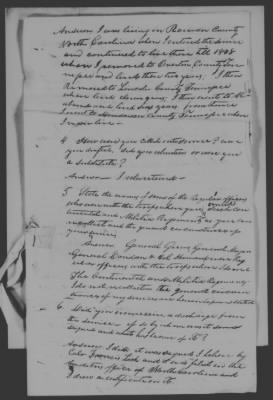 Answer I was living in Rowan County
North Carolina when I entered the service
and continued to live there till 1808
when I removed to Overton County Ten-
nessee and lived there two years, I then
Removed to Lincoln County Tennessee
where lived eleven years, I then went to Al-
abama and lived two years from thence
I went to Henderson County Tennessee where
I now live.
4 How were you called into service? were
you drafted, did you volunteer or were you
a substitute?
Answer I volunteered.
5 State the names of some of the regular officers
who were with the troops where you served, con-
tinental and Militia Regiments as you can
recollect and the general circumstances of
your service
Answer General Green, General
General Davidson & Col
as officers with the troops where I served
The Continental and Militia Regiments
I do not recollect the general circum-
stances of my services are
6 Did you ever receive a discharge from
the service, if so by whom was it
signed and what has become of it?
Answer I did it was signed I believe by
Colo Francis Lock and it was filed in the
office of North Carolina and
I drew a certificate on it